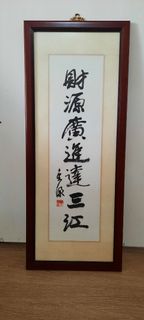 財源廣進達三江